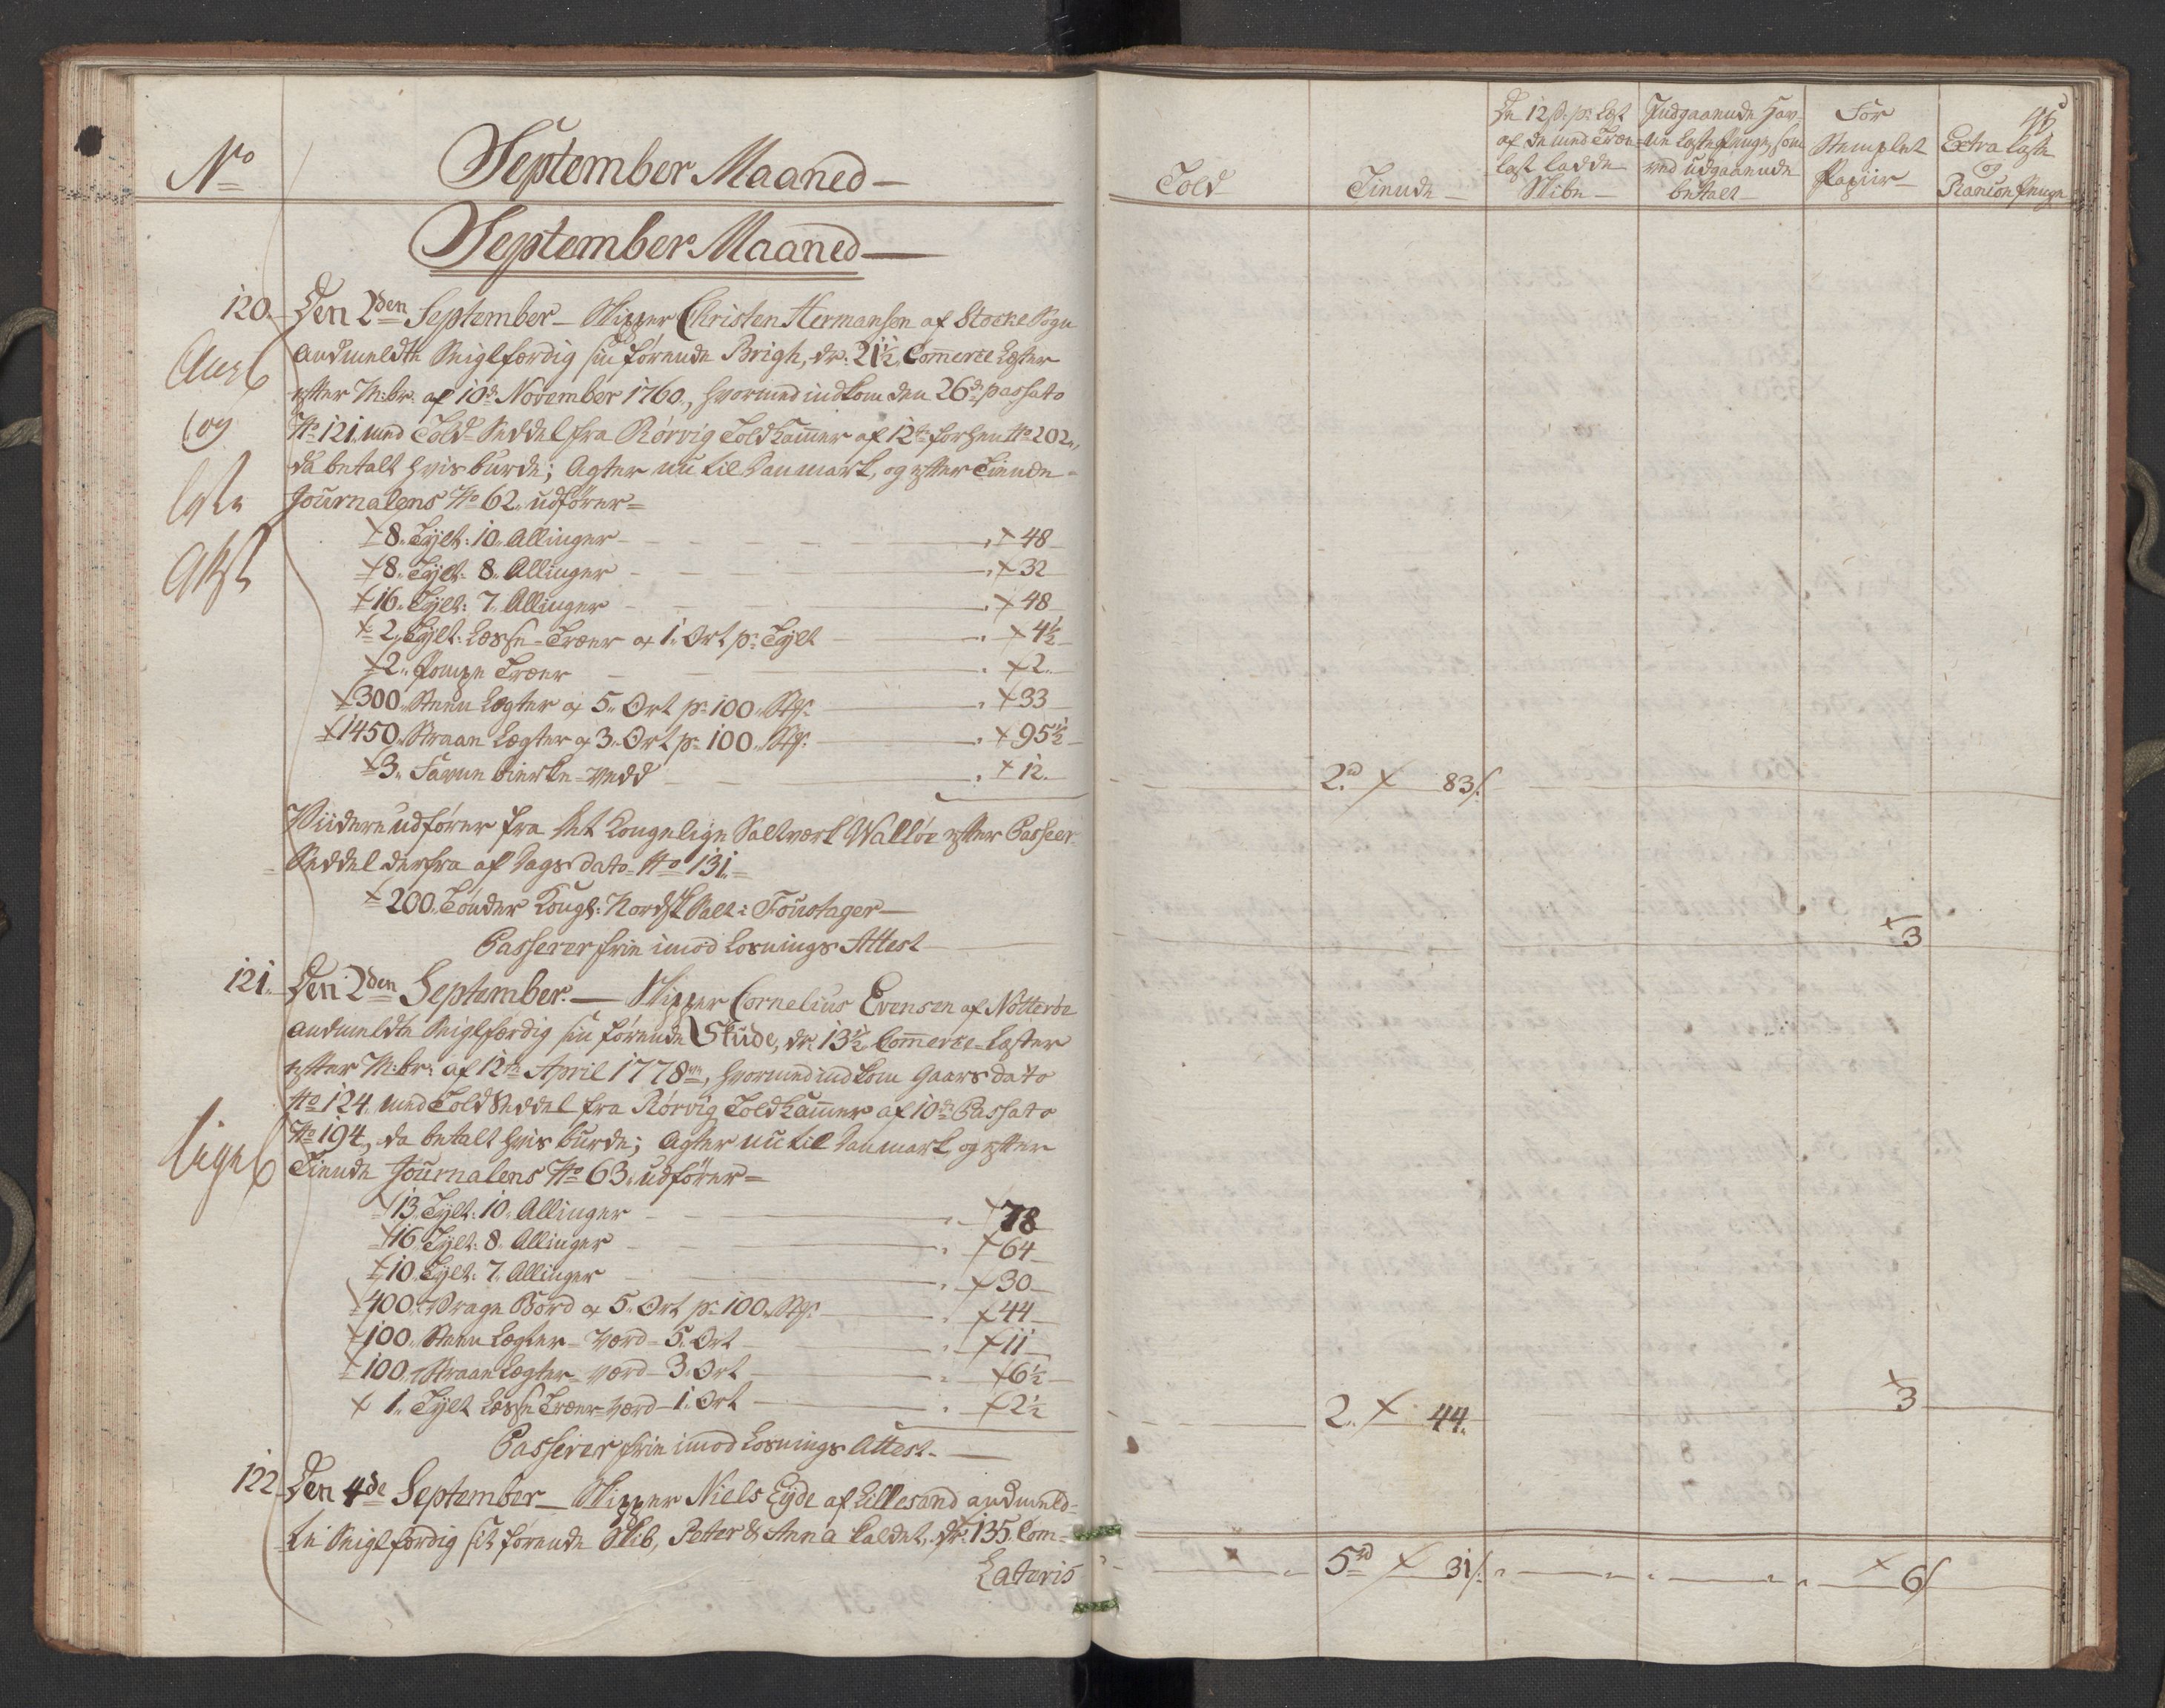 No
September Maaned
September Maaned
120. Den 2den September Skipper Christen Hermansen af Stocke Sogn
andmeldte Seiglfærdig sin førende Brigh, dr: 21½ Com̄erce Læster
efter M:br: af 10de November 1760, hvormed indkom den 26de passato
No 121. med Told-Seddel fra Rörvig Told kam̄er af 12te forhen No 202,
da betalt hvis burde; Agter nu til Danmark, og efter Tiende-
Journalens No 62. udfører=
8. Tylt: 10. Allinger 48
8. Tylt: 8. Allinger 32
16. Tylt: 7. Allinger 48
2. Tylt: Læsse-Træer a 1. Ort pr Tylt 4½
2. Pompe Træer 2.
300. Steen Lægter a 5. Ort pr 100. Stk: 33
1450. Straae Lægter a 3. Ort pr 100. Stk: 95½
3. Favne birke-Vedd 12.
Viidere udfører fra det Kongelige Saltværk Walløe efter Passeer
Seddel derfra af Dags dato No 131.
200. Tönder Kongl: Nordsk Salt i Foustager
Passerer frie imod Losnings Attest
121. Den 2den September. Skipper Cornelius Evensen af Nötteröe
andmeldte Seiglfærdig sin førende Skude, dr: 13½ Com̄erce-Læster
efter M:br: af 12te April 1778, hvormed indkom Gaars dato
No 124. med Told Seddel fra Rörvig Told kam̄er af 10de Passato
No 194, da betalt hvis burde; Agter nu til Danmark, og efter
ligel
Tiende Journalens No 63. udfører=
13. Tylt: 10. Allinger 78
16. Tylt: 8. Allinger 64
10. Tylt: 7. Allinger 30
400. Vrage Bord a 5. Ort pr 100. Stk: 44
100. Steen Lægter Værd 5. Ort 11
100. Straae Lægter Værd 3. Ort 6½
1. Tylt Læsse Træer Værd 1. Ort 2½
Passerer frie imod Losnings Attest.
122 Den 4de September Skipper Niels Eyde af Lillesand andmeld-
te Seiglfærdig sit førende Skib, Peter & Anna kaldet, dr: 135. Com-
Lateris
Told
Tiende
De 12 s. pr Læst
af de med Træe-
last ladde
Skibe
Indgaaende Hav-
ne Læstepenge, som
ved udgaaende
betalt
For
Stemplet
Papiir
Extra Læste
og
Rancon penge
2rd 83s
3
2. 44.
3
5rd 31s
6s